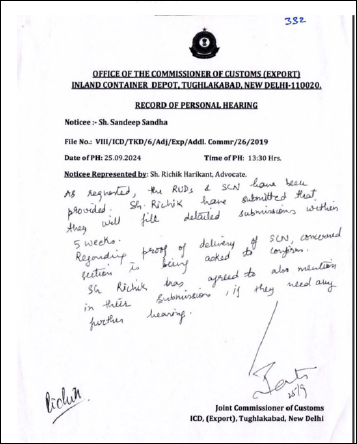 332
OFFICE OF THE COMMISSIONER OF CUSTOMS (EXPORT)
INLAND CONTAINER DEPOT, TUGHLAKABAD, NEW DELHI-110020.
RECORD OF PERSONAL HEARING
Noticee :- Sh. Sandeep Sandha
File No.: VIII/ICD/TKD/6/Adj/Exp/Addl. Commr/26/2019
Date of PH: 25.09.2024 Time of PH: 13:30 Hrs.
Noticee Represented by: Sh. Richik Harikant, Advocate.
As requested, the RUDs & SCN have been
provided. Sh. Richik have submitted that
they will file detailed submissions within
5 weeks.
Regarding proof of delivery of SCN, concerned
section is being asked to confirm.
Sh Richik has agreed to also mention
in their submission, if they need any
further hearing.
25/9
Richik
Joint Commissioner of Customs
ICD, (Export), Tughlakabad, New Delhi